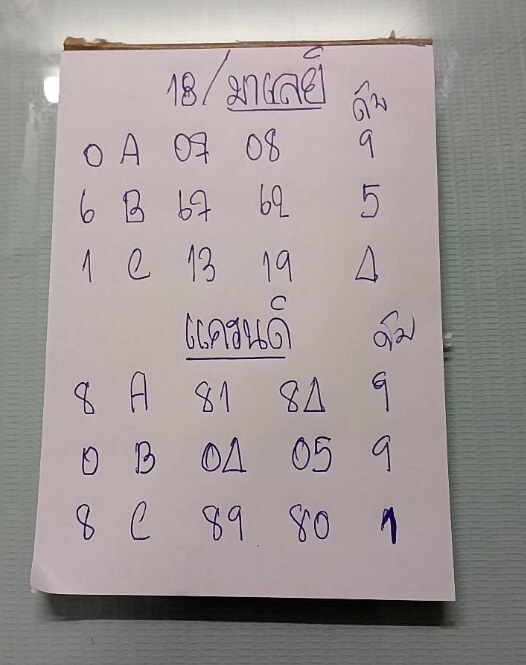 18/มาเลย์ ดับ
0 A 07 08 9
6 B 67 62 5
1 C 13 19 4
แครนด์ ดับ
8 A 81 84 9
0 B 04 05 9
8 C 89 80 1